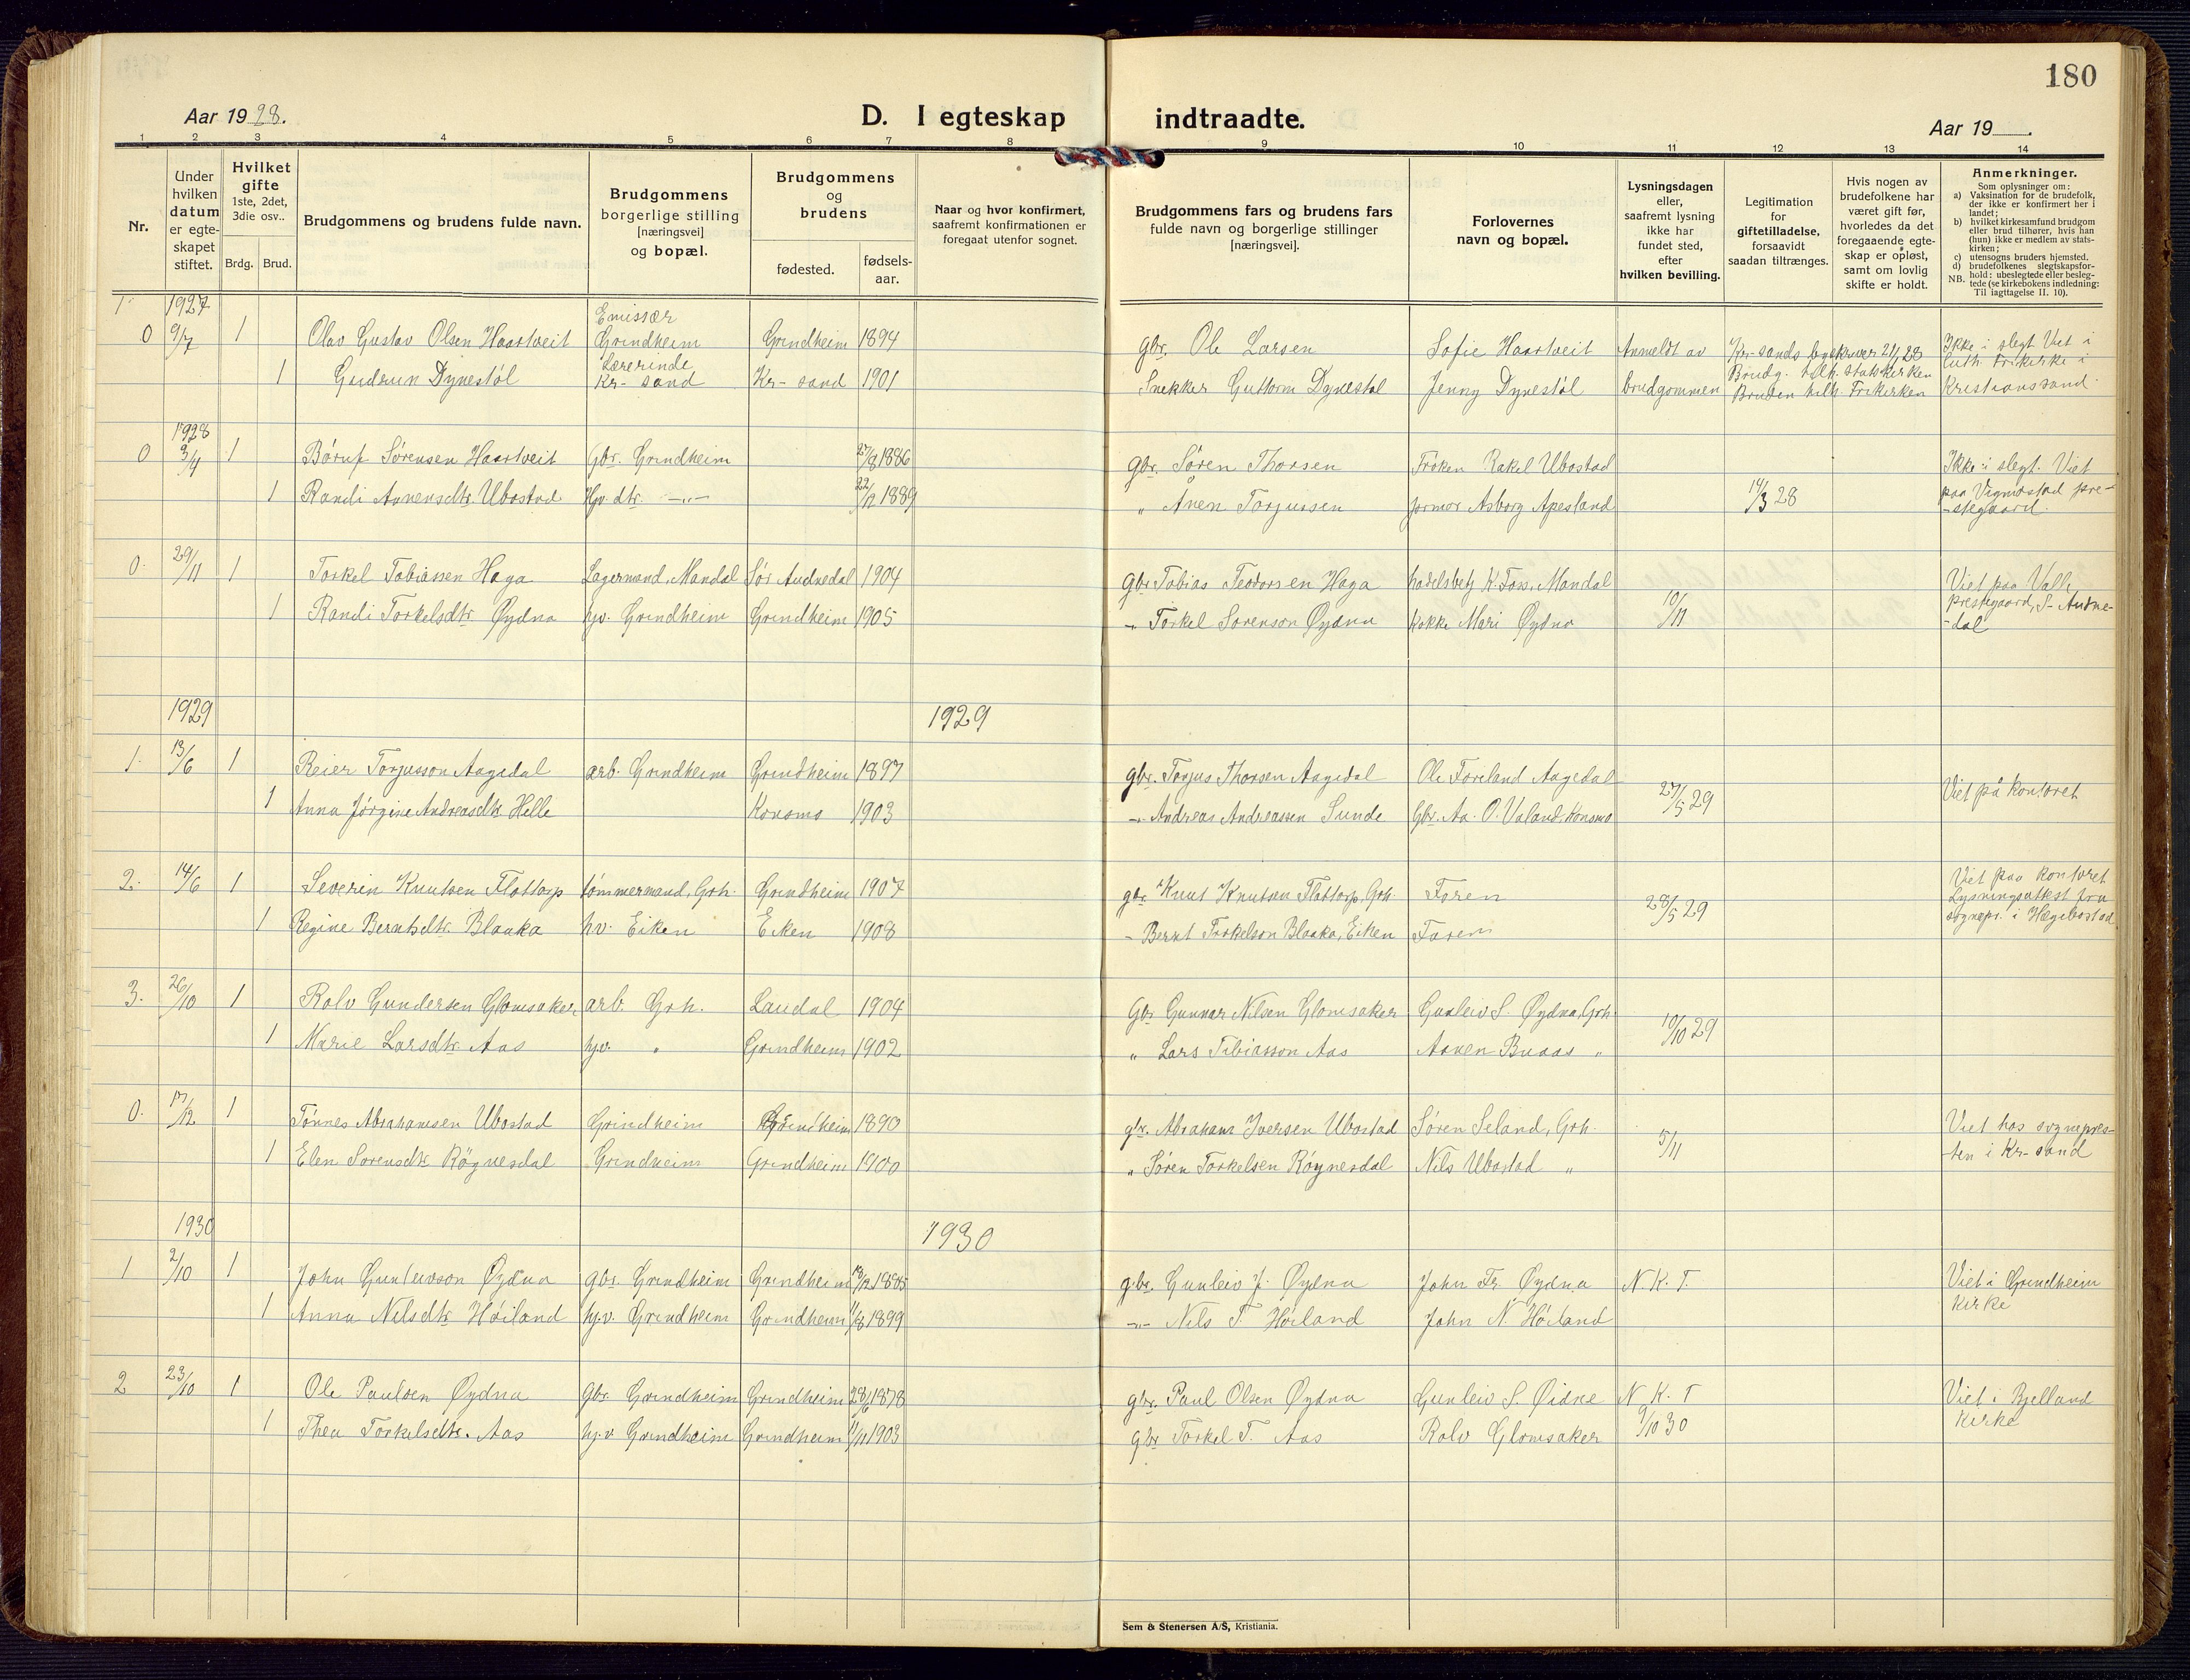 180
Aar 1928.
D. I egteskap indtraadte.
Aar 19
1 2 3 4 5 6 7 8 9 10 11 12 13 14
Nr.
Under hvilken datum er egte-skapet stiftet.
Hvilket gifte 1ste, 2det, 3die osv..
Brdg. Brud.
Brudgommens og brudens fulde navn.
Brudgommens borgerlige stilling [næringsvei] og bopæl.
Brudgommens og brudens
fødested.
fødsels-aar.
Naar og hvor konfirmert, saafremt konfirmationen er foregaat utenfor sognet.
Brudgommens fars og brudens fars fulde navn og borgerlige stillinger [næringsvei].
Forlovernes navn og bopæl.
Lysningsdagen eller, saafremt lysning ikke har fundet sted, efter hvilken bevilling.
Legitimation for giftetilladelse, forsaavidt saadan tiltrænges.
Hvis nogen av brudefolkene har været gift før, hvorledes da det foregaaende egte-skap er opløst, samt om lovlig skifte er holdt.
Anmerkninger.
Som oplysninger om:
a) Vaksination for de brudefolk, der ikke er konfirmert her i landet;
b) hvilket kirkesamfund brudgom eller brud tilhører, hvis han (hun) ikke er medlem av stats-kirken;
c) utensogns bruders hjemsted.
d) brudefolkenes slegtskapsfor-hold: ubeslegtede eller besleg-tede (se kirkebokens indledning: NB. Til iagttagelse II. 10).
1927
0 9/7 1 Olav Gustav Olsen Haartveit Emissær Grindheim Grindheim 1894 gbr. Ole Larsen Sofie Haartveit Anmeldt av Kr-sands
Ikke i slegt Viet i luth. Frikirke i Kristianssand.
1 Gudrun Dynestøl Lærerinde Kr-sand Kr-sand 1901 Snekker Guttorm Dynestøl Jenny Dynestøl brudgommen Brudg. tilh. statskirken Bruden tilh. Frikirken
1928
0 3/4 1 Børuf Sørensen Haartveit Gbr. Grindheim 27/8 1886 gbr. Søren Thorsen Frøken Rakel Ubostad
Ikke i slegt. Viet paa Vigmostad pre-stegaard.
1 Randi Aanensdtr. Ubostad Hjv. dtr. -"- 22/12 1889 " Ånen Torjussen jormor Asborg Apesland 14/3 28
0. 29/11 1 Torkel Tobiassen Haga Lagermand, Mandal Sør Audnedal 1904 Gbr Tobias Teodorsen Haga K. Foss, Mandal
Viet paa Valle prestegaard, S-Audne-dal
1 Randi Torkelsdtr. Øydna hjv. Grindheim Grindheim 1905 -"- Torkel Sørenson Øydna kokke Mari Øydna 10/11
1929 1929
1. 13/6 1 Reier Torjusson Aagedal arb. Grindheim Grindheim 1897 gbr. Torjus Thorsen Aagedal Ole Foreland Aagedal
27/5 29 Viet på kontoret
1 Anna Jørgine Andreasdtr Helle Konsmo 1903 -"- Andreas Andreassen Sunde Gbr. Aa. O. Valand, Konsmo
2. 14/6 1 Severin Knutsen Flottorp tømmermand, Grh. Grindheim 1907 gbr. Knut Knutsen Flottorp, Grh. Faren
28/5 29 Viet paa kontoret Lysningsattest fra sognepr. i Hægebostad
1 Regine Berntsdtr. Blaaka hv. Eiken Eiken 1908 - Bernt Torkelson Blaaka, Eiken Faren
3. 26/10 1 Rolv Gundersen Glomsaker, arb. Grh. Laudal 1904 Gbr Gunnar Nilsen Glomsaker Gunleiv S. Øydna, Grh.
10/10 29
1 Marie Larsdtr. Aas hjv. " Grindheim 1902 " Lars Tobiasson Aas Aanen Buaas "
0. 17/12 1 Tønnes Abrahamsen Ubostad Grindheim Grindheim 1890 gbr. Abraham Iversen Ubostad Søren Seland, Grh.
5/11 Viet hos sognepres-ten i Kr-sand
1 Elen Sørensdtr. Røynesdal Grindheim Grindheim 1900 " Søren Torkelsen Røynesdal Nils Ubostad "
1930 1930
1 2/10 1 John Gunleivson Øydna gbr. Grindheim Grindheim gbr. Gunleiv J. Øydna John Fr. Øydna N. K. T.
Viet i Grindheim kirke
1 Anna Nilsdtr. Høiland hjv. Grindheim Grindheim 11/8 1899 -"- Nils T. Høiland John N. Høiland
2 23/10 1 Ole Paulsen Øydna gbr. Grindheim Grindheim 28/6 1878 gbr. Paul Olsen Øydna Gunleiv S. Øidne N. K. T
9/10 30 Viet i Bjelland kirke
1 Thea Torkelsdtr. Aas hjv Grindheim Grindheim 11/11 1903 gbr Torkel T. Aas Rolv Glomsaker
Sem & Stenersen A/S, Kristiania.